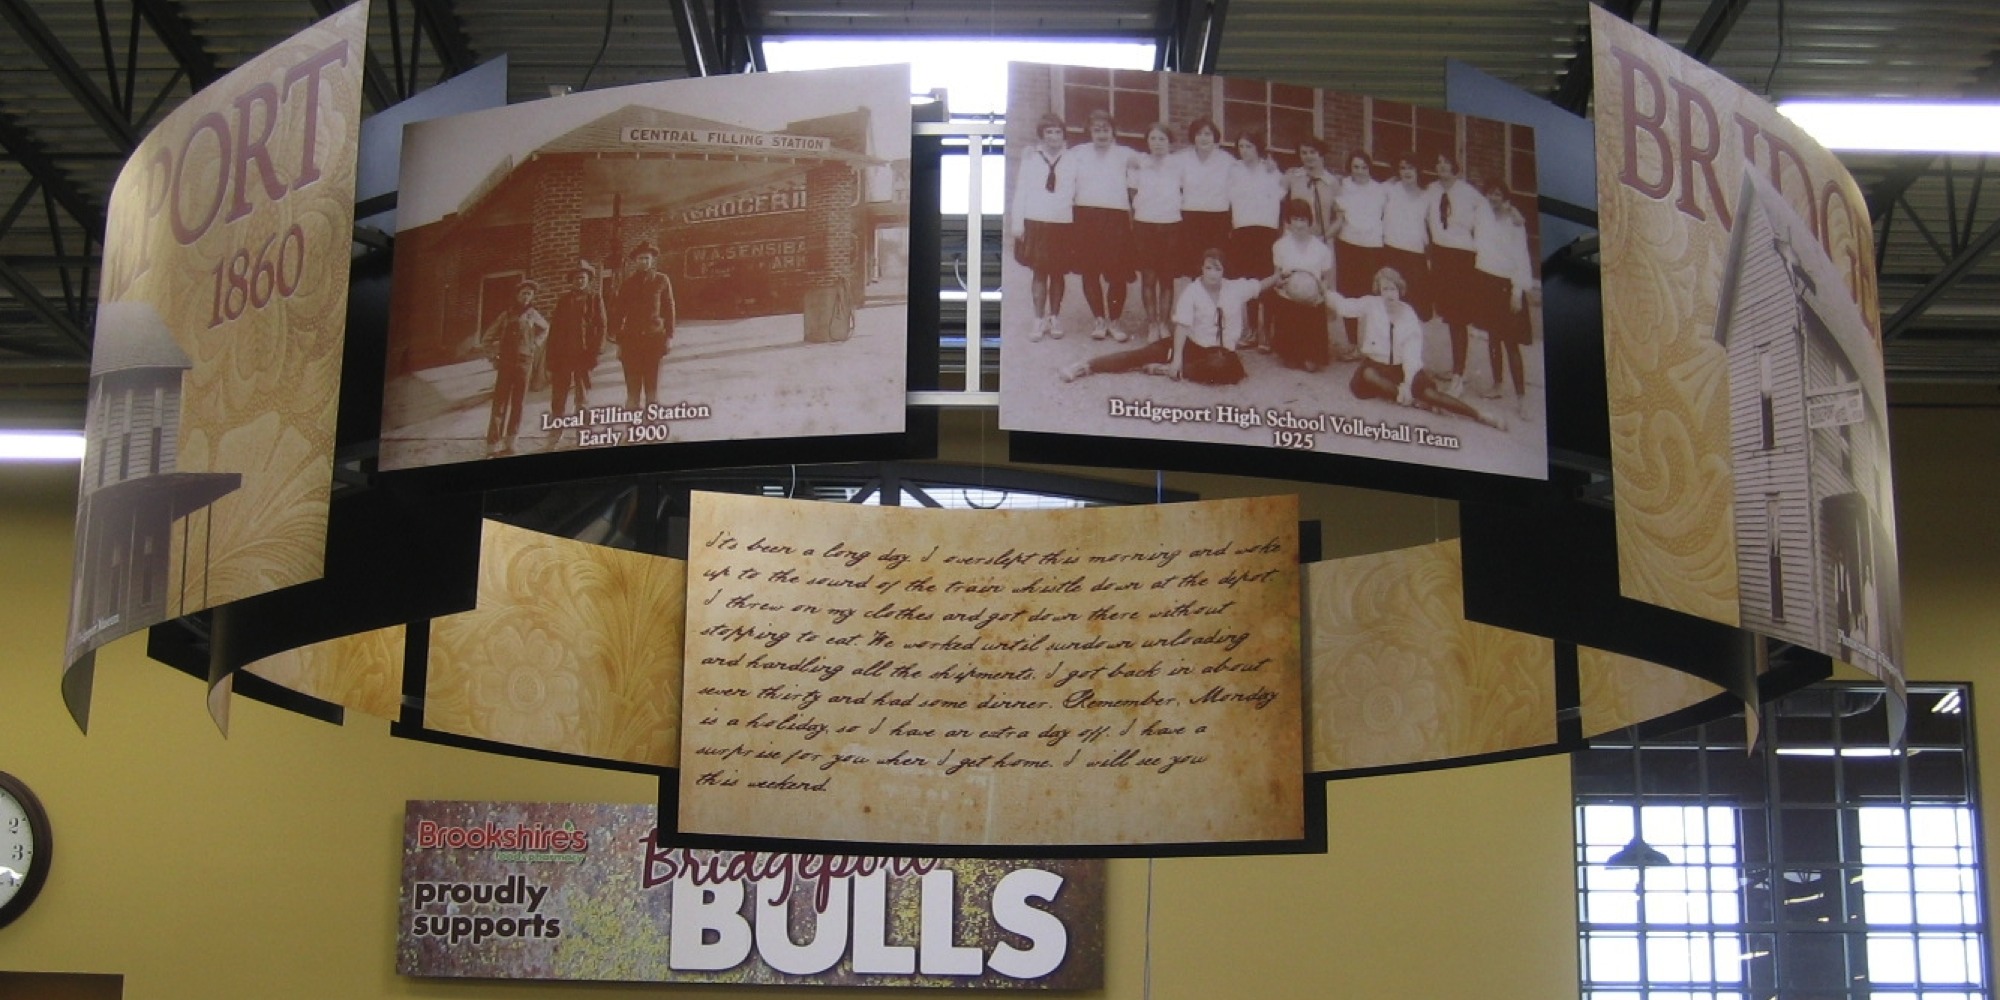 PORT
1860
CENTRAL FILLING STATION
GROCERI
W.A. SENSIBA
Local Filling Station
Early 1900
Bridgeport High School Volleyball Team
1925
BRIDGE
Its been a long day. I overslept this morning and woke
up to the sound of the train whistle down at the depot.
I threw on my clothes and got down there without
stopping to eat. We worked until sundown unloading
and handling all the shipments. I got back in about
seven thirty and had some dinner. Remember, Monday
is a holiday, so I have an extra day off. I have a
surprise for you when I get home. I will see you
this weekend.
Brookshire's
food & pharmacy
proudly
supports
Bridgeport
BULLS
2
3
4